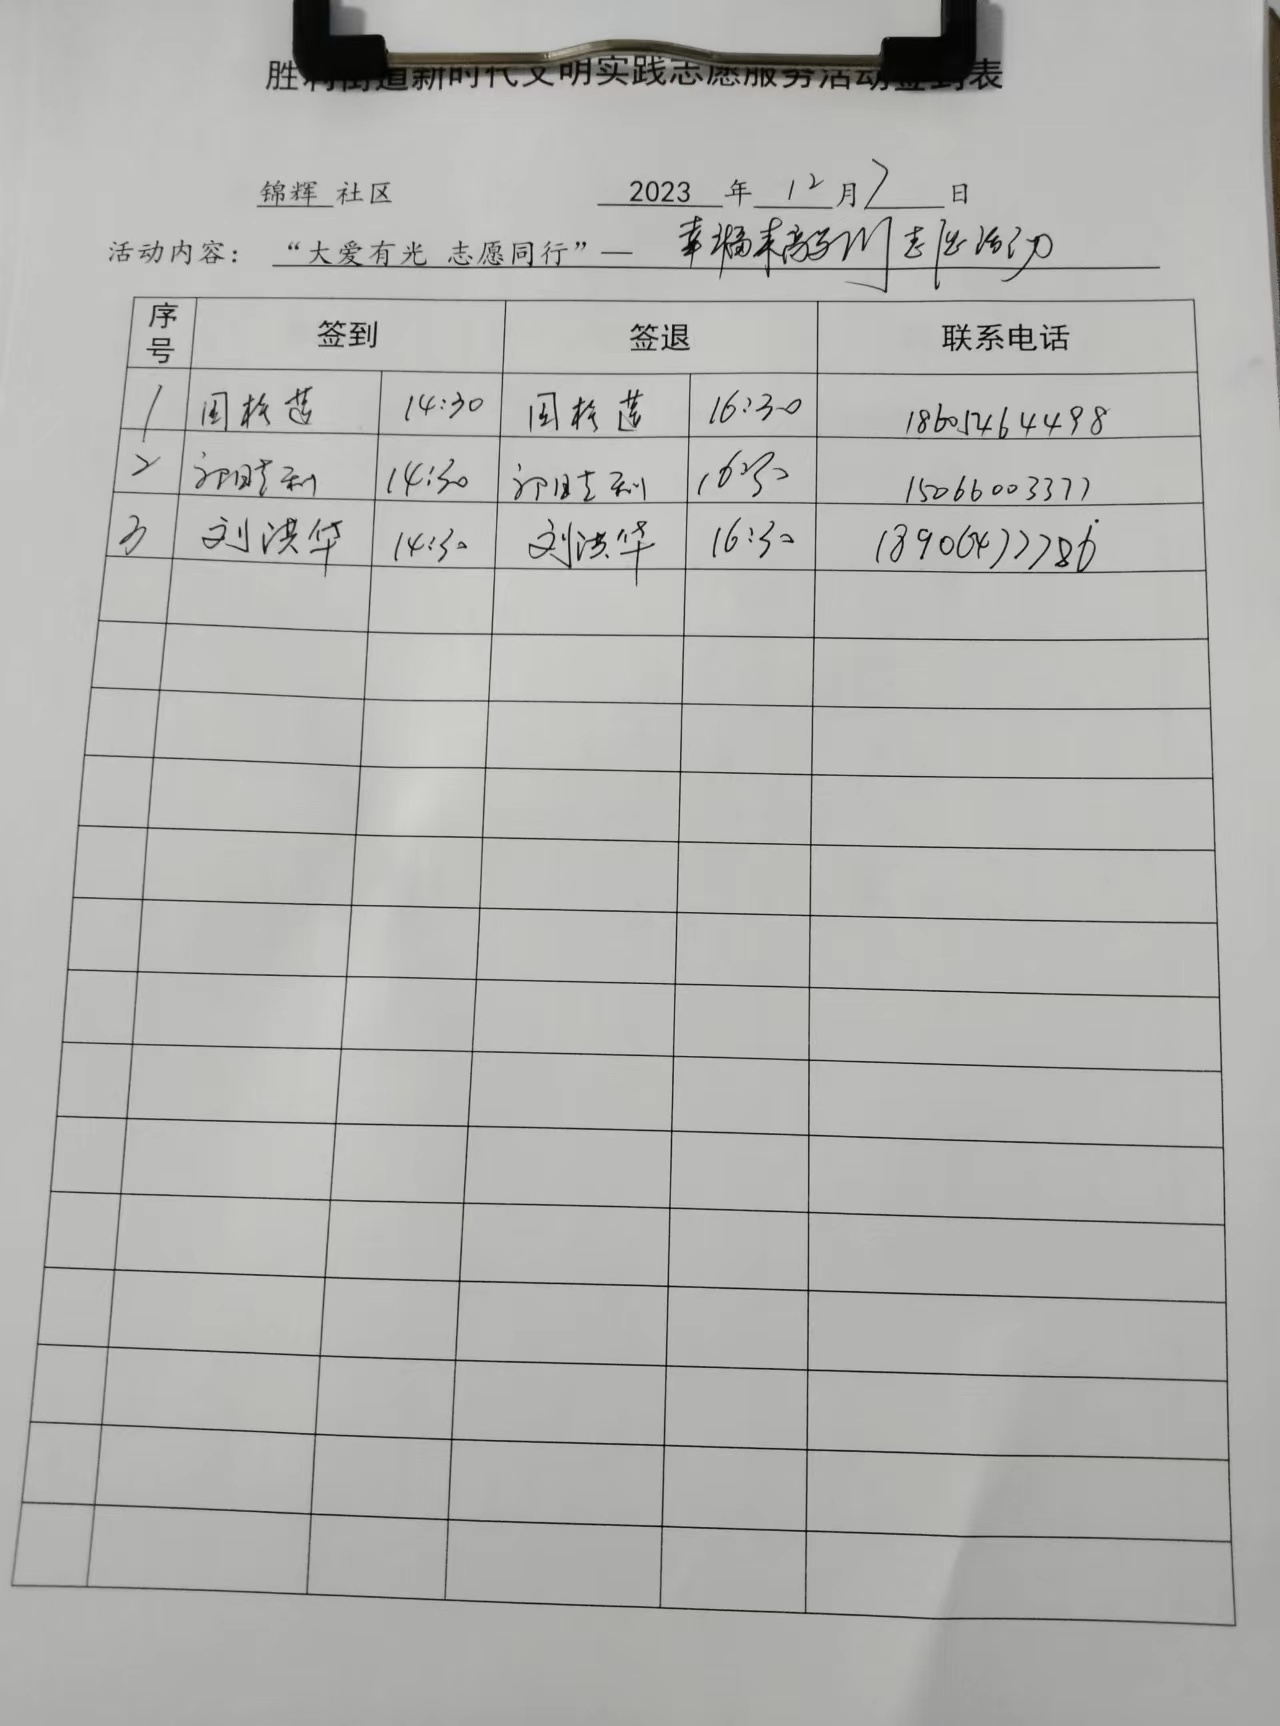 胜利街道新时代文明实践志愿服务活动签到表
锦辉 社区 2023 年 12 月 7 日
活动内容： “大爱有光 志愿同行”— 幸福来敲门 志愿活动
序号 签到 签退 联系电话
1 周桂莲 14:30 周桂莲 16:30 18605464498
2 14:30 16:30 15066003377
3 刘洪华 14:30 刘洪华 16:30 18906477786